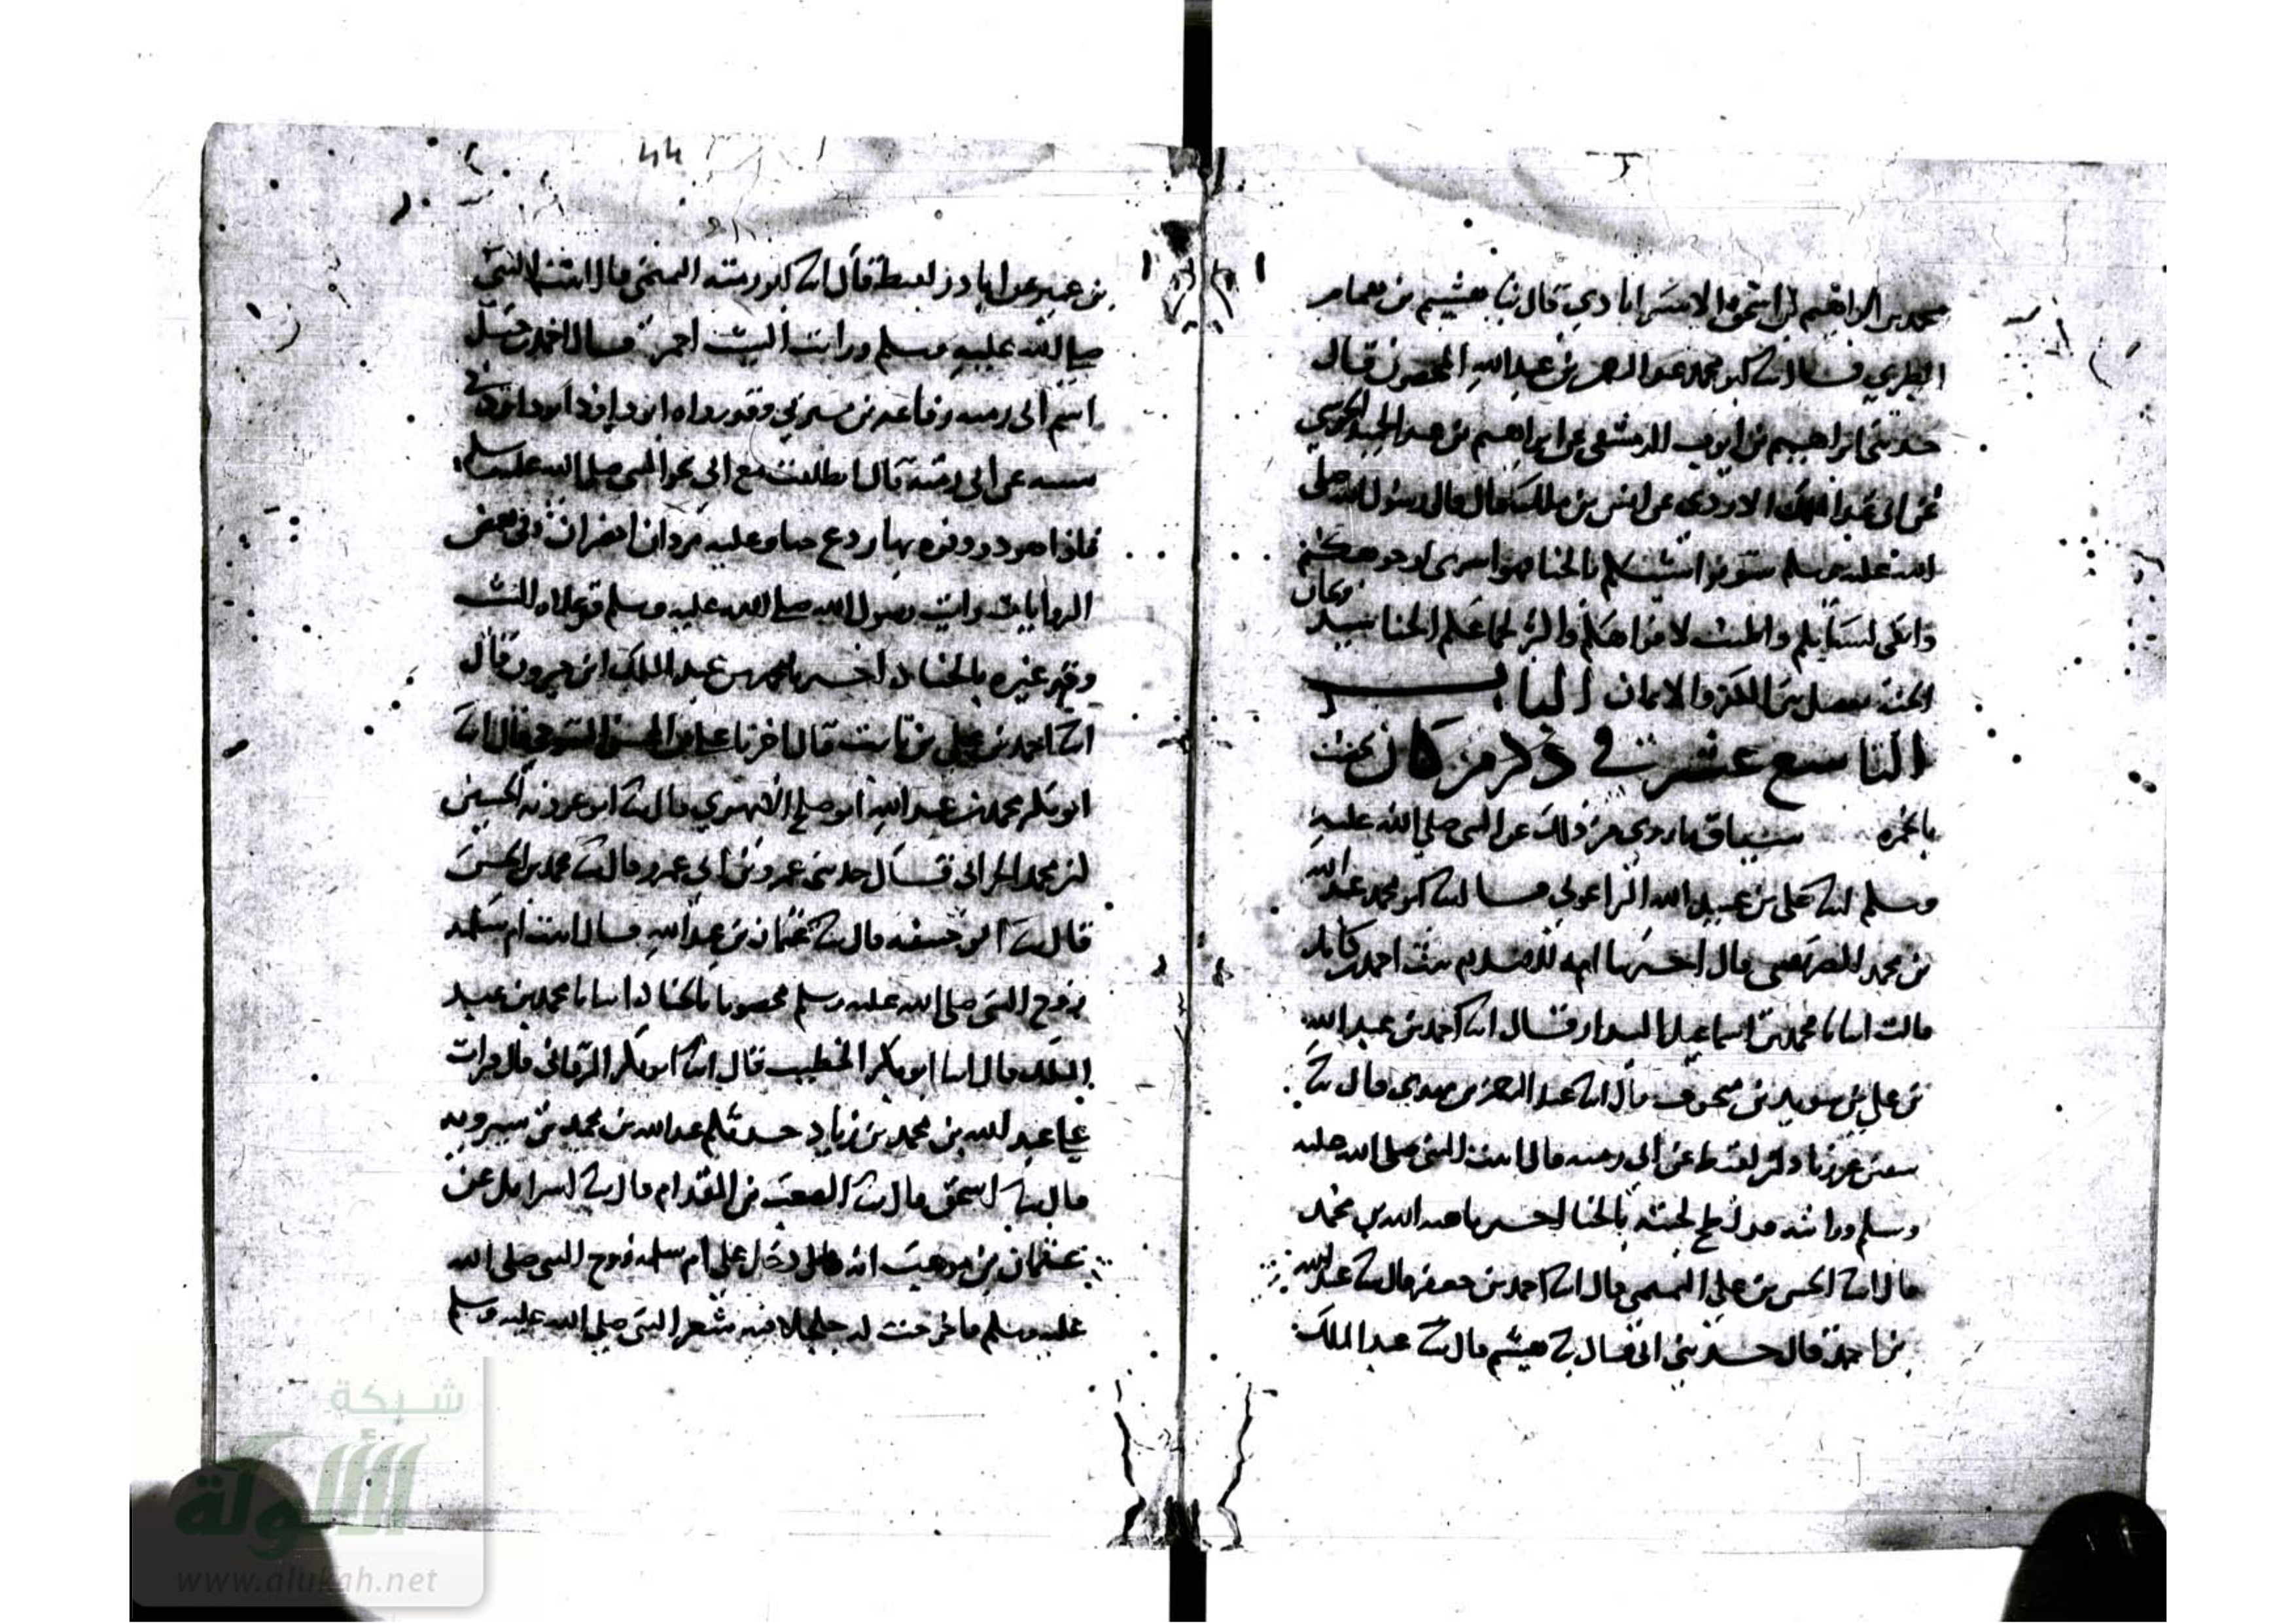 محمد بن ابراهيم بن اسحق الاستراباذي قال ثنا هشيم بن همام
الطبري قال انا ابو محمد عبد الرحمن بن عبد الله قال
حدثني ابراهيم بن ايوب الدمشقي عن ابراهيم بن عبد الحميد الجرشي
عن ابي عبد الملك الازدي عن انس بن ملك قال قال رسول الله صلى
الله عليه وسلم بالحنا فهو اسرى لوجوهكم
وانقى والحنا سيد ريحان
الجنة يفصل بين الكفر والايمان الباب
التاسع عشر في ذكر من كان يخضب
بالحمره سياق ما روي من ذلك عن النبي صلى الله عليه
وسلم انا علي بن عبيد الله الزاغوني قال انا ابو محمد عبد الله
بن محمد قال اخبرتنا امة السلام بنت احمد بن كامل
قالت انبانا محمد بن اسماعيل البندار قال انا احمد بن عبد الله
بن علي بن سويد بن منجوف قال انا عبد الرحمن بن مهدي قال ثنا
سفين عن اياد بن لقيط عن ابي رمثه قال اتيت النبي صلى الله عليه
وسلم ورايته قد لطخ لحيته بالحنا اخبرنا هبة الله بن محمد
قال انا الحسن بن علي التميمي قال انا احمد بن جعفر قال ثنا عبد الله
بن احمد قال حدثني ابي قال ثنا هشيم قال ثنا عبد الملك
بن عمير عن اياد بن لقيط قال انا ابو رمثه التيمي قال اتيت النبي
صلى الله عليه وسلم ورايت الشيب احمر قال احمد بن حنبل
اسم ابي رمثه رفاعه بن يثربي وقد رواه ابو داود في
سننه عن ابي رمثة قال انطلقت مع ابي نحو النبي صلى الله عليه وسلم
فاذا هو ذو وفره بها ردع حنا وعليه بردان اخضران وفي بعض
الروايات رايت رسول الله صلى الله عليه وسلم قد علاه الشيب
وقد غيره بالحنا اخبرنا محمد بن عبد الملك ابن خيرون قال
انا احمد بن علي بن ثابت قال اخبرنا علي بن المحسن التنوخي قال انا
ابو بكر محمد بن عبد الله ابو صالح الابهري قال ثنا ابو عروبة الحسين
بن محمد الحراني قال حدثني عمرو بن ابي عمرو قال ثنا محمد بن الحسن
قال ثنا ابو حنيفه قال ثنا عثمان بن عبد الله قال اتيت ام سلمه
زوج النبي صلى الله عليه وسلم مخضوبا بالحنا انبانا محمد بن عبيد
الله قال انبا ابو بكر الخطيب قال انا ابو بكر البرقاني قال قرات
على عبد الله بن محمد بن زياد حدثكم عبد الله بن محمد بن شيرويه
قال ثنا اسحق قال ثنا المصعب بن المقدام قال ثنا اسرايل عن
عثمان بن موهب انه دخل على ام سلمه زوج النبي صلى الله
عليه وسلم فاخرجت له جلجلا فيه شعر النبي صلى الله عليه وسلم
شبكة
الألوكة
www.alukah.net